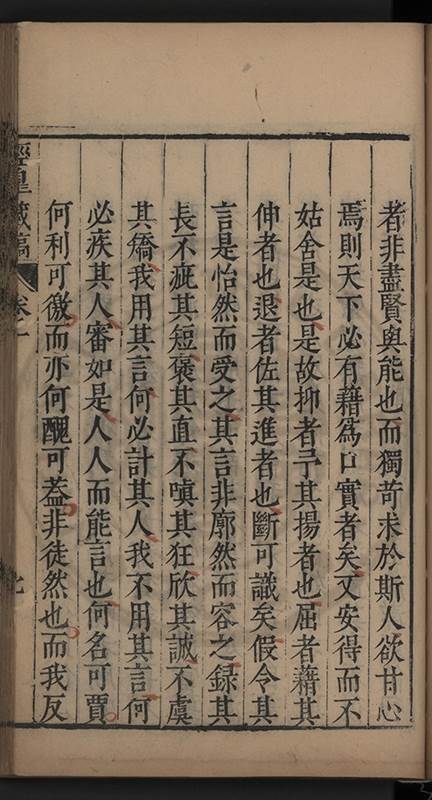 者非盡賢與能也而獨苛求於斯人欲甘心
焉則天下必有藉爲口實者矣又安得而不
姑舍是也是故抑者予其揚者也屈者藉其
伸者也退者佐其進者也斷可識矣假令其
言是怡然而受之其言非廓然而容之錄其
長不疵其短褒其直不嗔其狂欣其誠不虞
其矯我用其言何必計其人我不用其言何
必疾其人審如是人人而能言也何名可賈
何利可徼而亦何醜可葢非徒然也而我反
藏稿 卷一